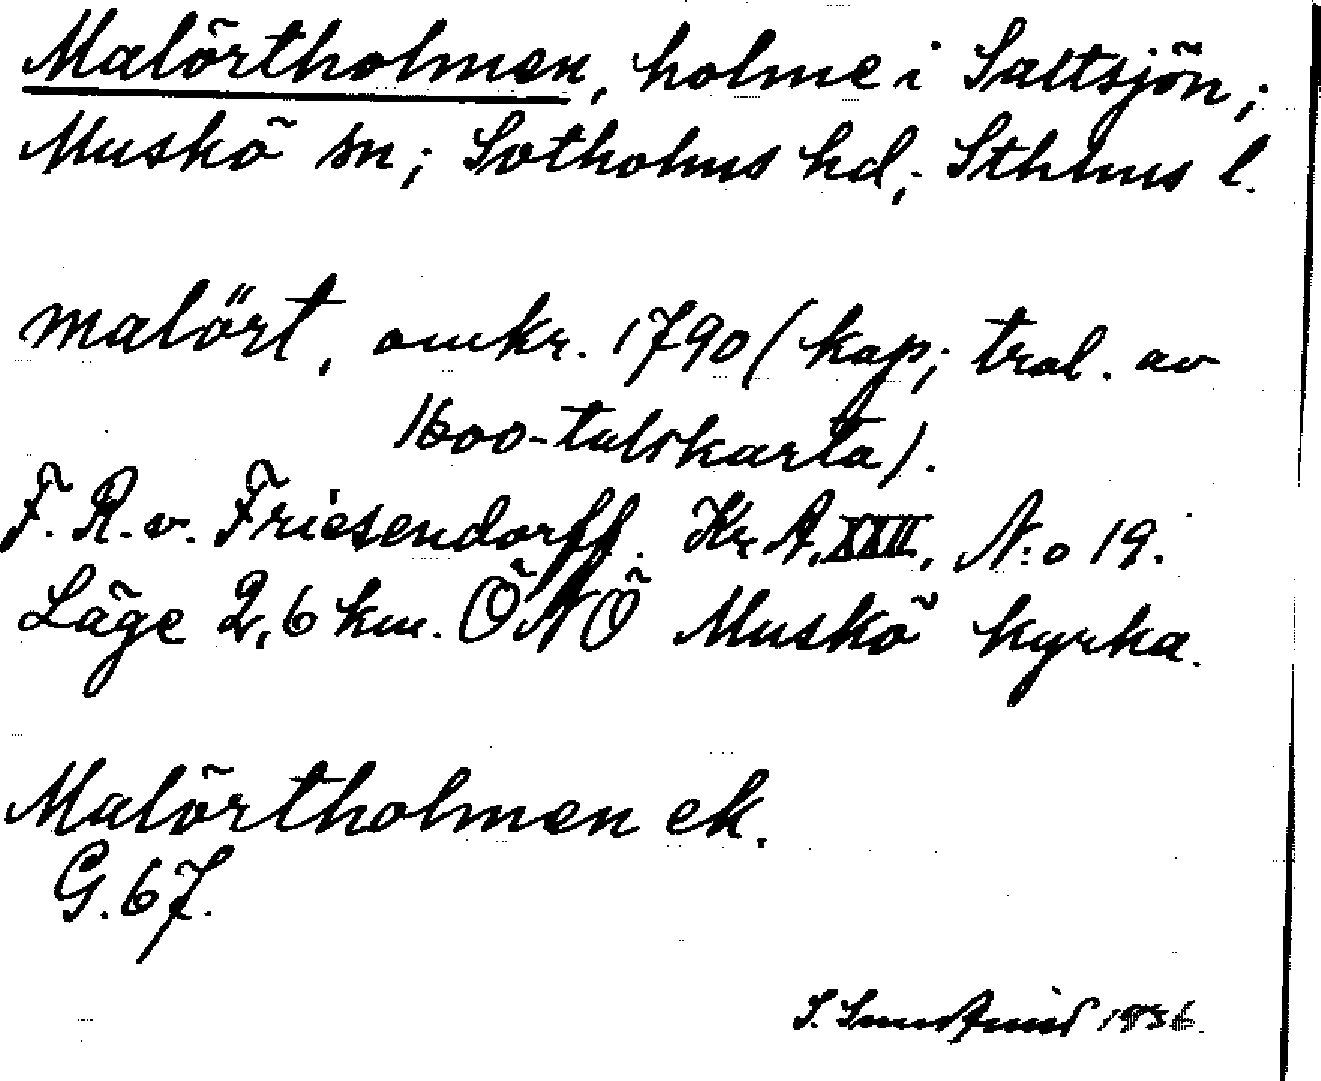 Malörtholmen, holme i Saltsjön;
Muskö sn; Sotholms hd; Sthlms l.
malört, omkr. 1790 (kop; trol. av
1600-talskarta).
F. R. v. Friesendorff. Kr. A. XXII, N:o 19.
Läge 2,6 km. ÖNÖ Muskö kyrka.
Malörtholmen ek.
G. 67.
S. 1936.